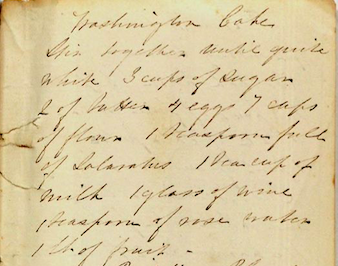 Washington Cake
Stir together until quite
white 3 cups of Sugar
2 of butter 4 eggs 7 cups
of flour 1 teaspoon full
of Salaratus 1 tea cup of
milk 1 glass of wine
1 teaspoon of rose water
1 lb of fruit -